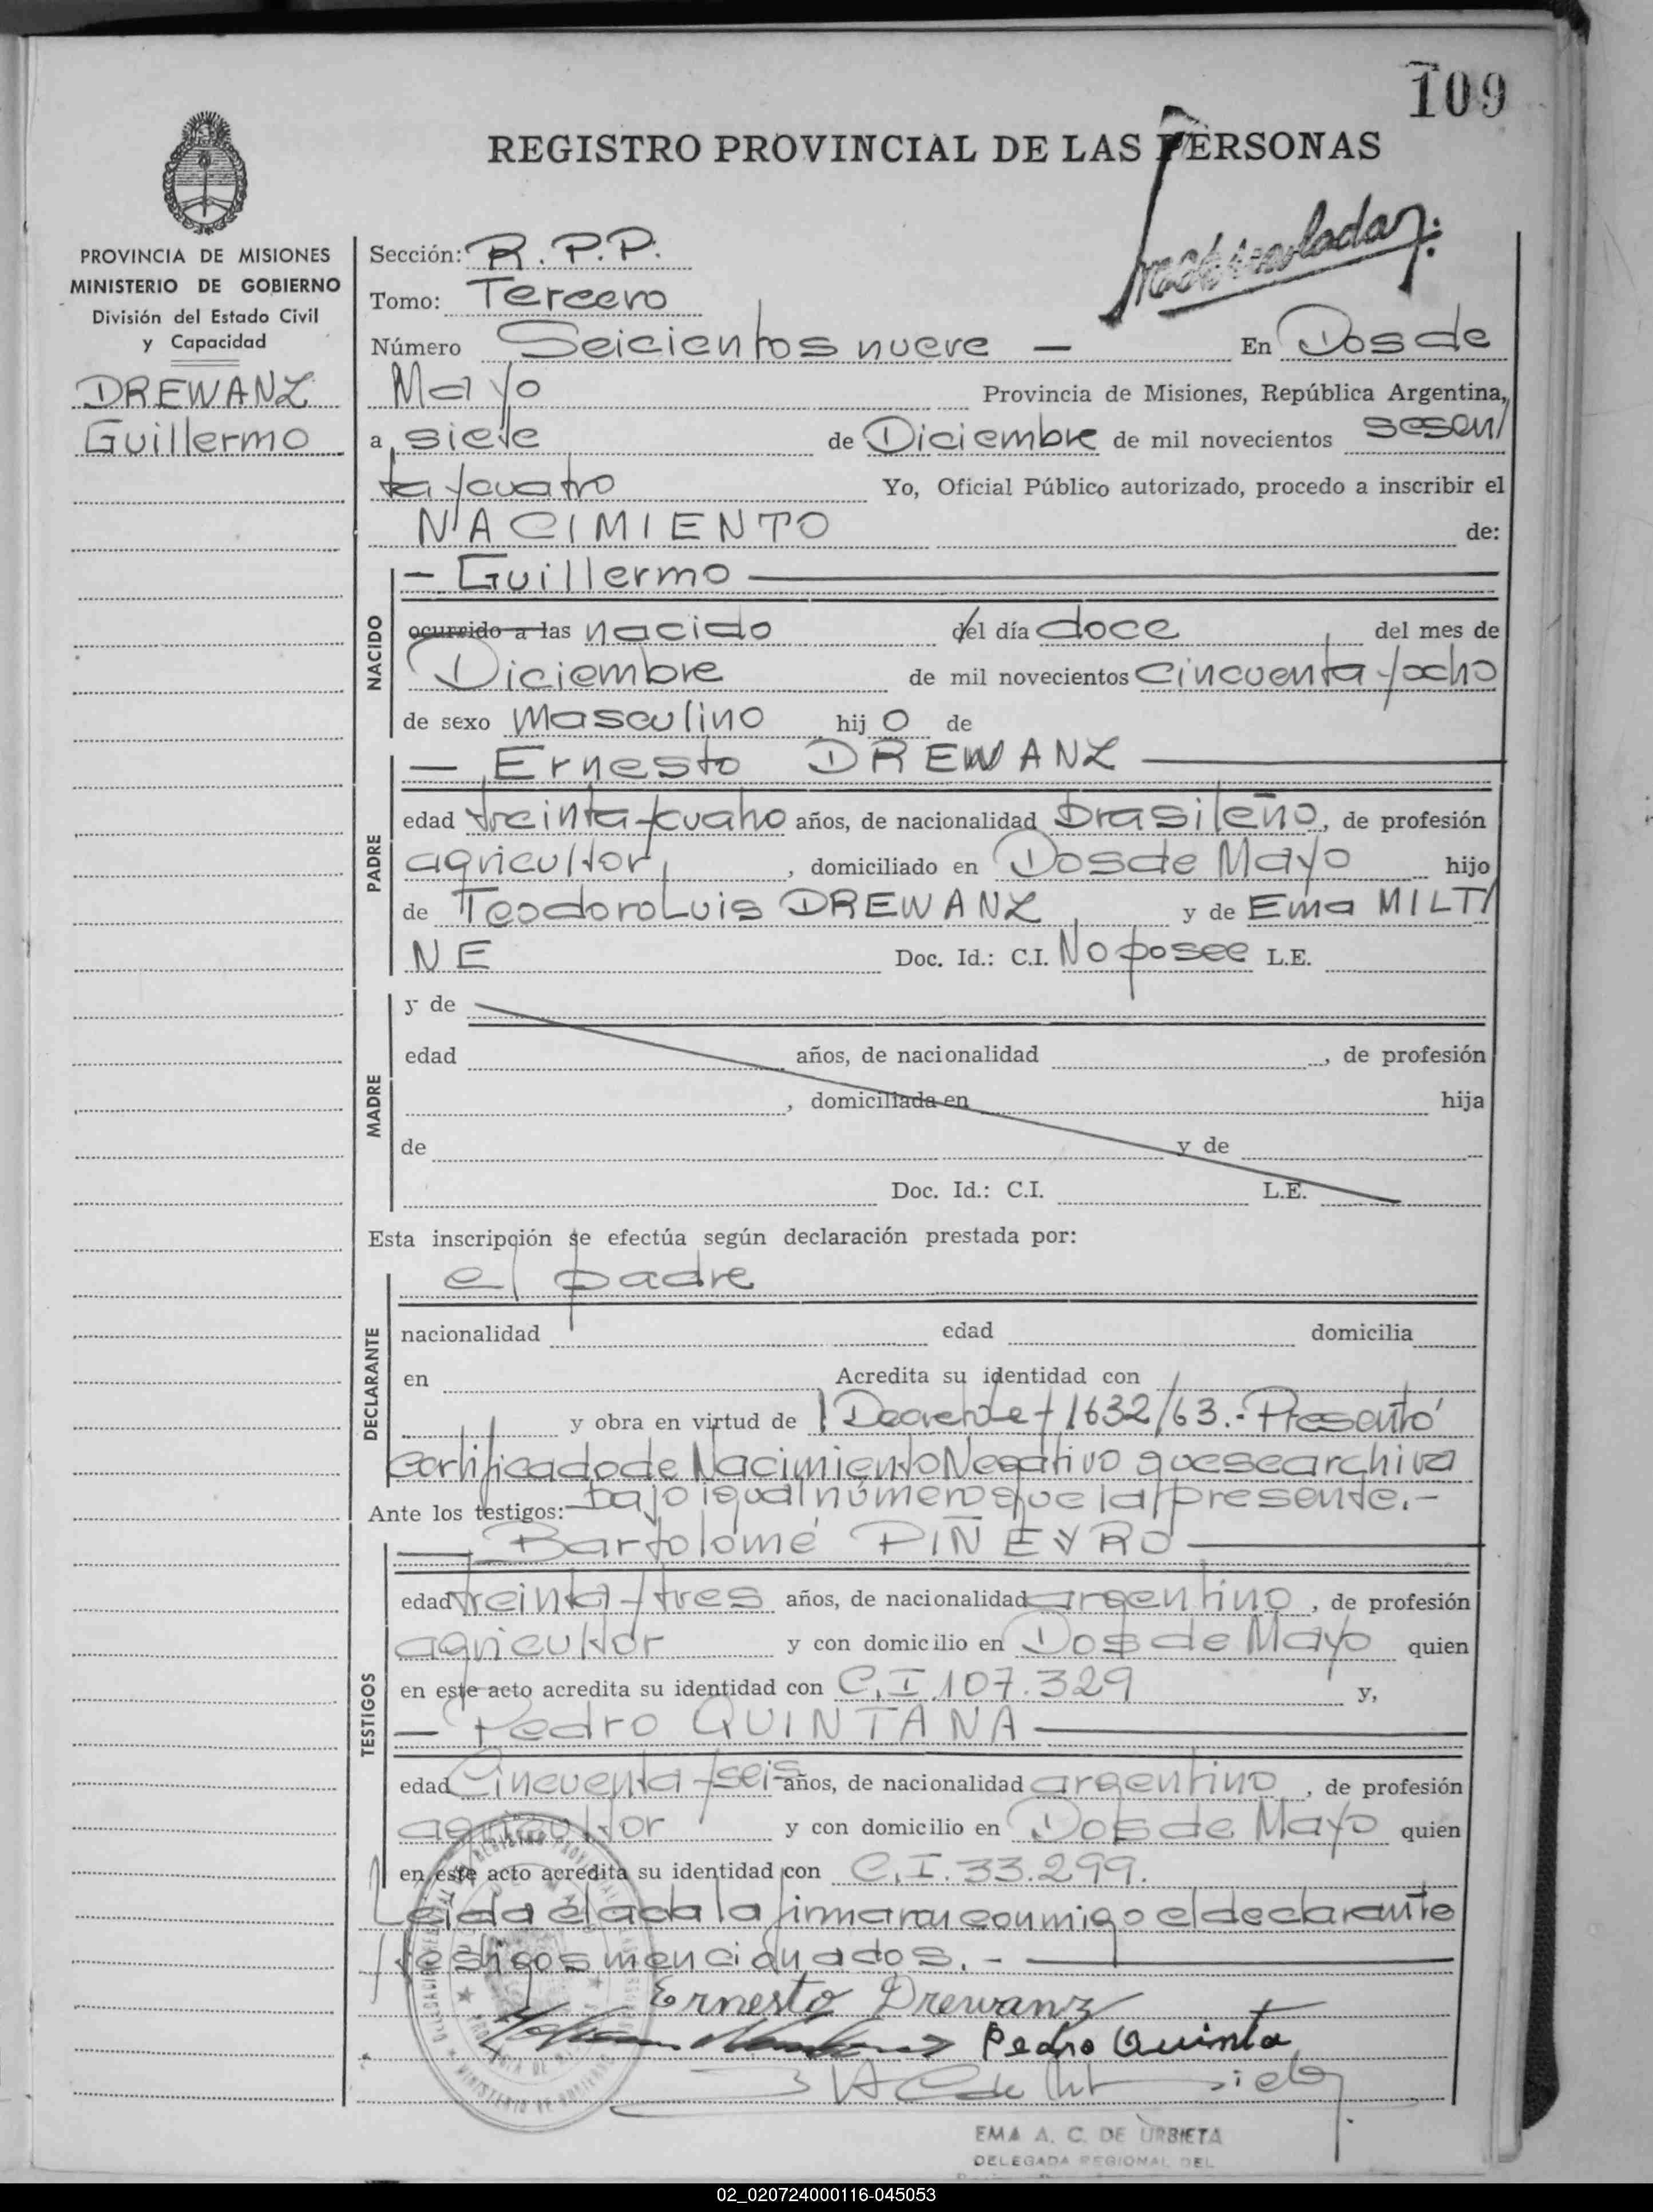 109
REGISTRO PROVINCIAL DE LAS PERSONAS
PROVINCIA DE MISIONES
MINISTERIO DE GOBIERNO
División del Estado Civil
y Capacidad
DREWANZ
Guillermo
Sección: R.P.P.
Tomo: Tercero
Número Seicientos nueve — En Dos de
Mayo Provincia de Misiones, República Argentina,
a siete de Diciembre de mil novecientos sesen/
ta y cuatro Yo, Oficial Público autorizado, procedo a inscribir el
NACIMIENTO de:
NACIDO
— Guillermo
ocurrido a las nacido del día doce del mes de
Diciembre de mil novecientos cincuenta y ocho
de sexo masculino hijo de
PADRE
— Ernesto DREWANZ
edad treinta y cuatro años, de nacionalidad brasileño, de profesión
agricultor, domiciliado en Dos de Mayo hijo
de Teodoro Luis DREWANZ y de Ema MILT/
NE Doc. Id.: C.I. No posee L.E.
MADRE
y de
edad años, de nacionalidad , de profesión
, domiciliada en hija
de y de
Doc. Id.: C.I. L.E.
Esta inscripción se efectúa según declaración prestada por:
el padre
DECLARANTE
nacionalidad edad domicilia
en Acredita su identidad con
y obra en virtud de 1632/63.- Presentó
certificado de Nacimiento Negativo que se archiva
Ante los testigos: bajo igual número que la presente.-
TESTIGOS
— Bartolomé PIÑEYRO
edad treinta y tres años, de nacionalidad argentino, de profesión
agricultor y con domicilio en Dos de Mayo quien
en este acto acredita su identidad con C.I. 107.329 y,
— Pedro QUINTANA
edad Cincuenta y seis años, de nacionalidad argentino, de profesión
agricultor y con domicilio en Dos de Mayo quien
en este acto acredita su identidad con C.I. 33.299.
Leída el acta la firmaron conmigo el declarante
y testigos mencionados.-
Ernesto Drewanz
Pedro Quinta
EMA A. C. DE URBIETA
DELEGADA REGIONAL DEL
02_020724000116-045053